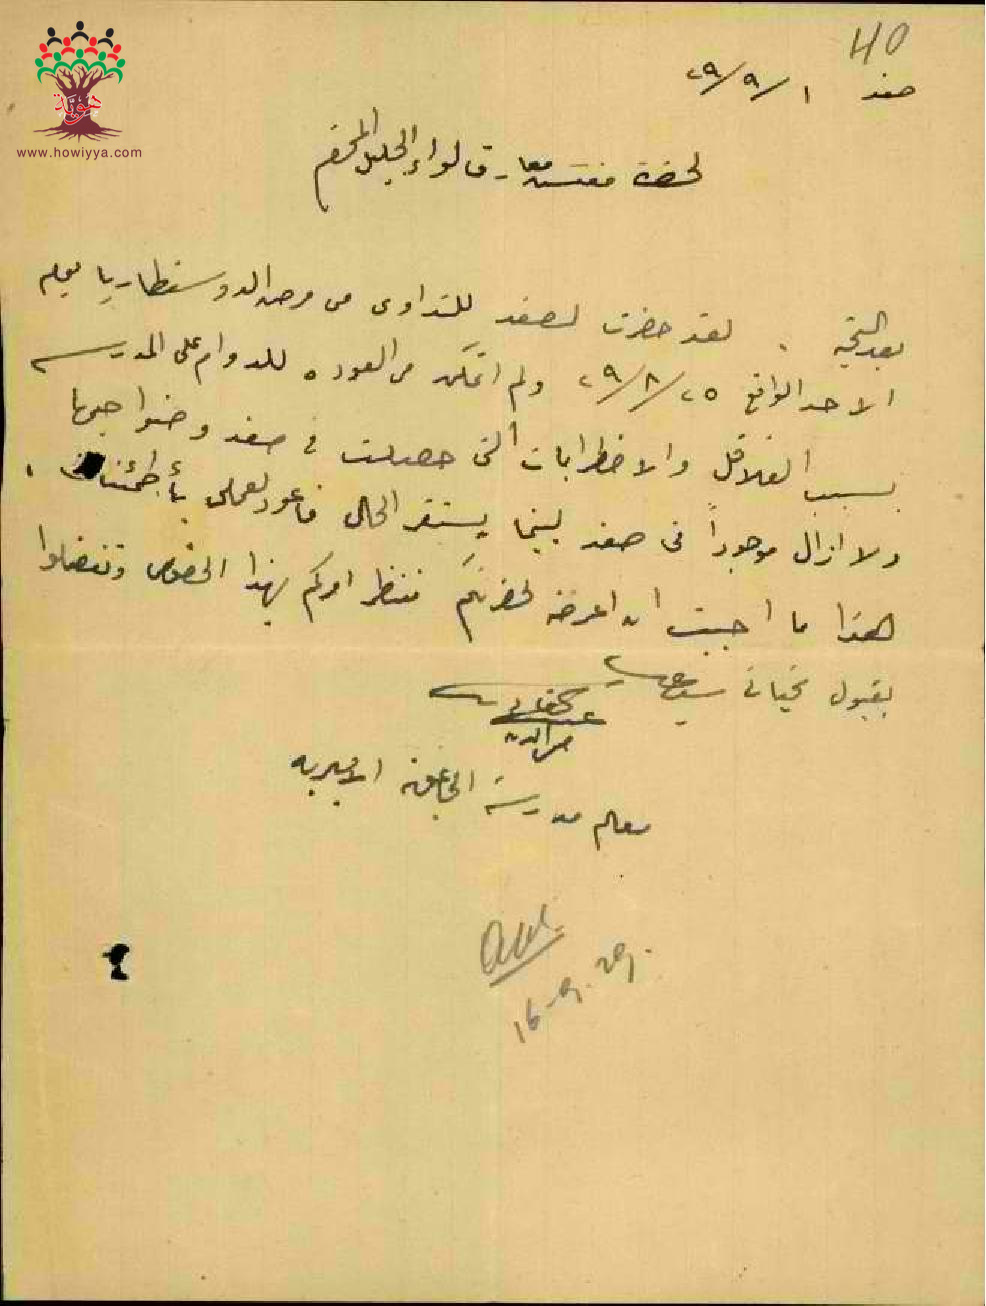 40
صفد ١/٩/٢٩
هوية
www.howiyya.com
لحضرة مفتش معارف لواء الجليل المحترم
بعد التحية . لقد حضرت لصفد للتداوي من مرض الدوسنطاريا يوم
الاحد الواقع ٢٥/٨/٢٩ ولم اتمكن من العوده للدوام على المدرسة
بسبب القلاقل والاضطرابات التي حصلت في صفد وضواحيها
ولا ازال موجوداً في صفد لبينما يستقر الحال فاعود لعملي بأطمئنان .
هذا ما احببت ان اعرضه لحضرتكم منتظر امركم بهذا الخصوص وتفضلوا
بقبول تحياتي سيدي
معلم مدرسة الجاعونة الاميرية
16.9.29.